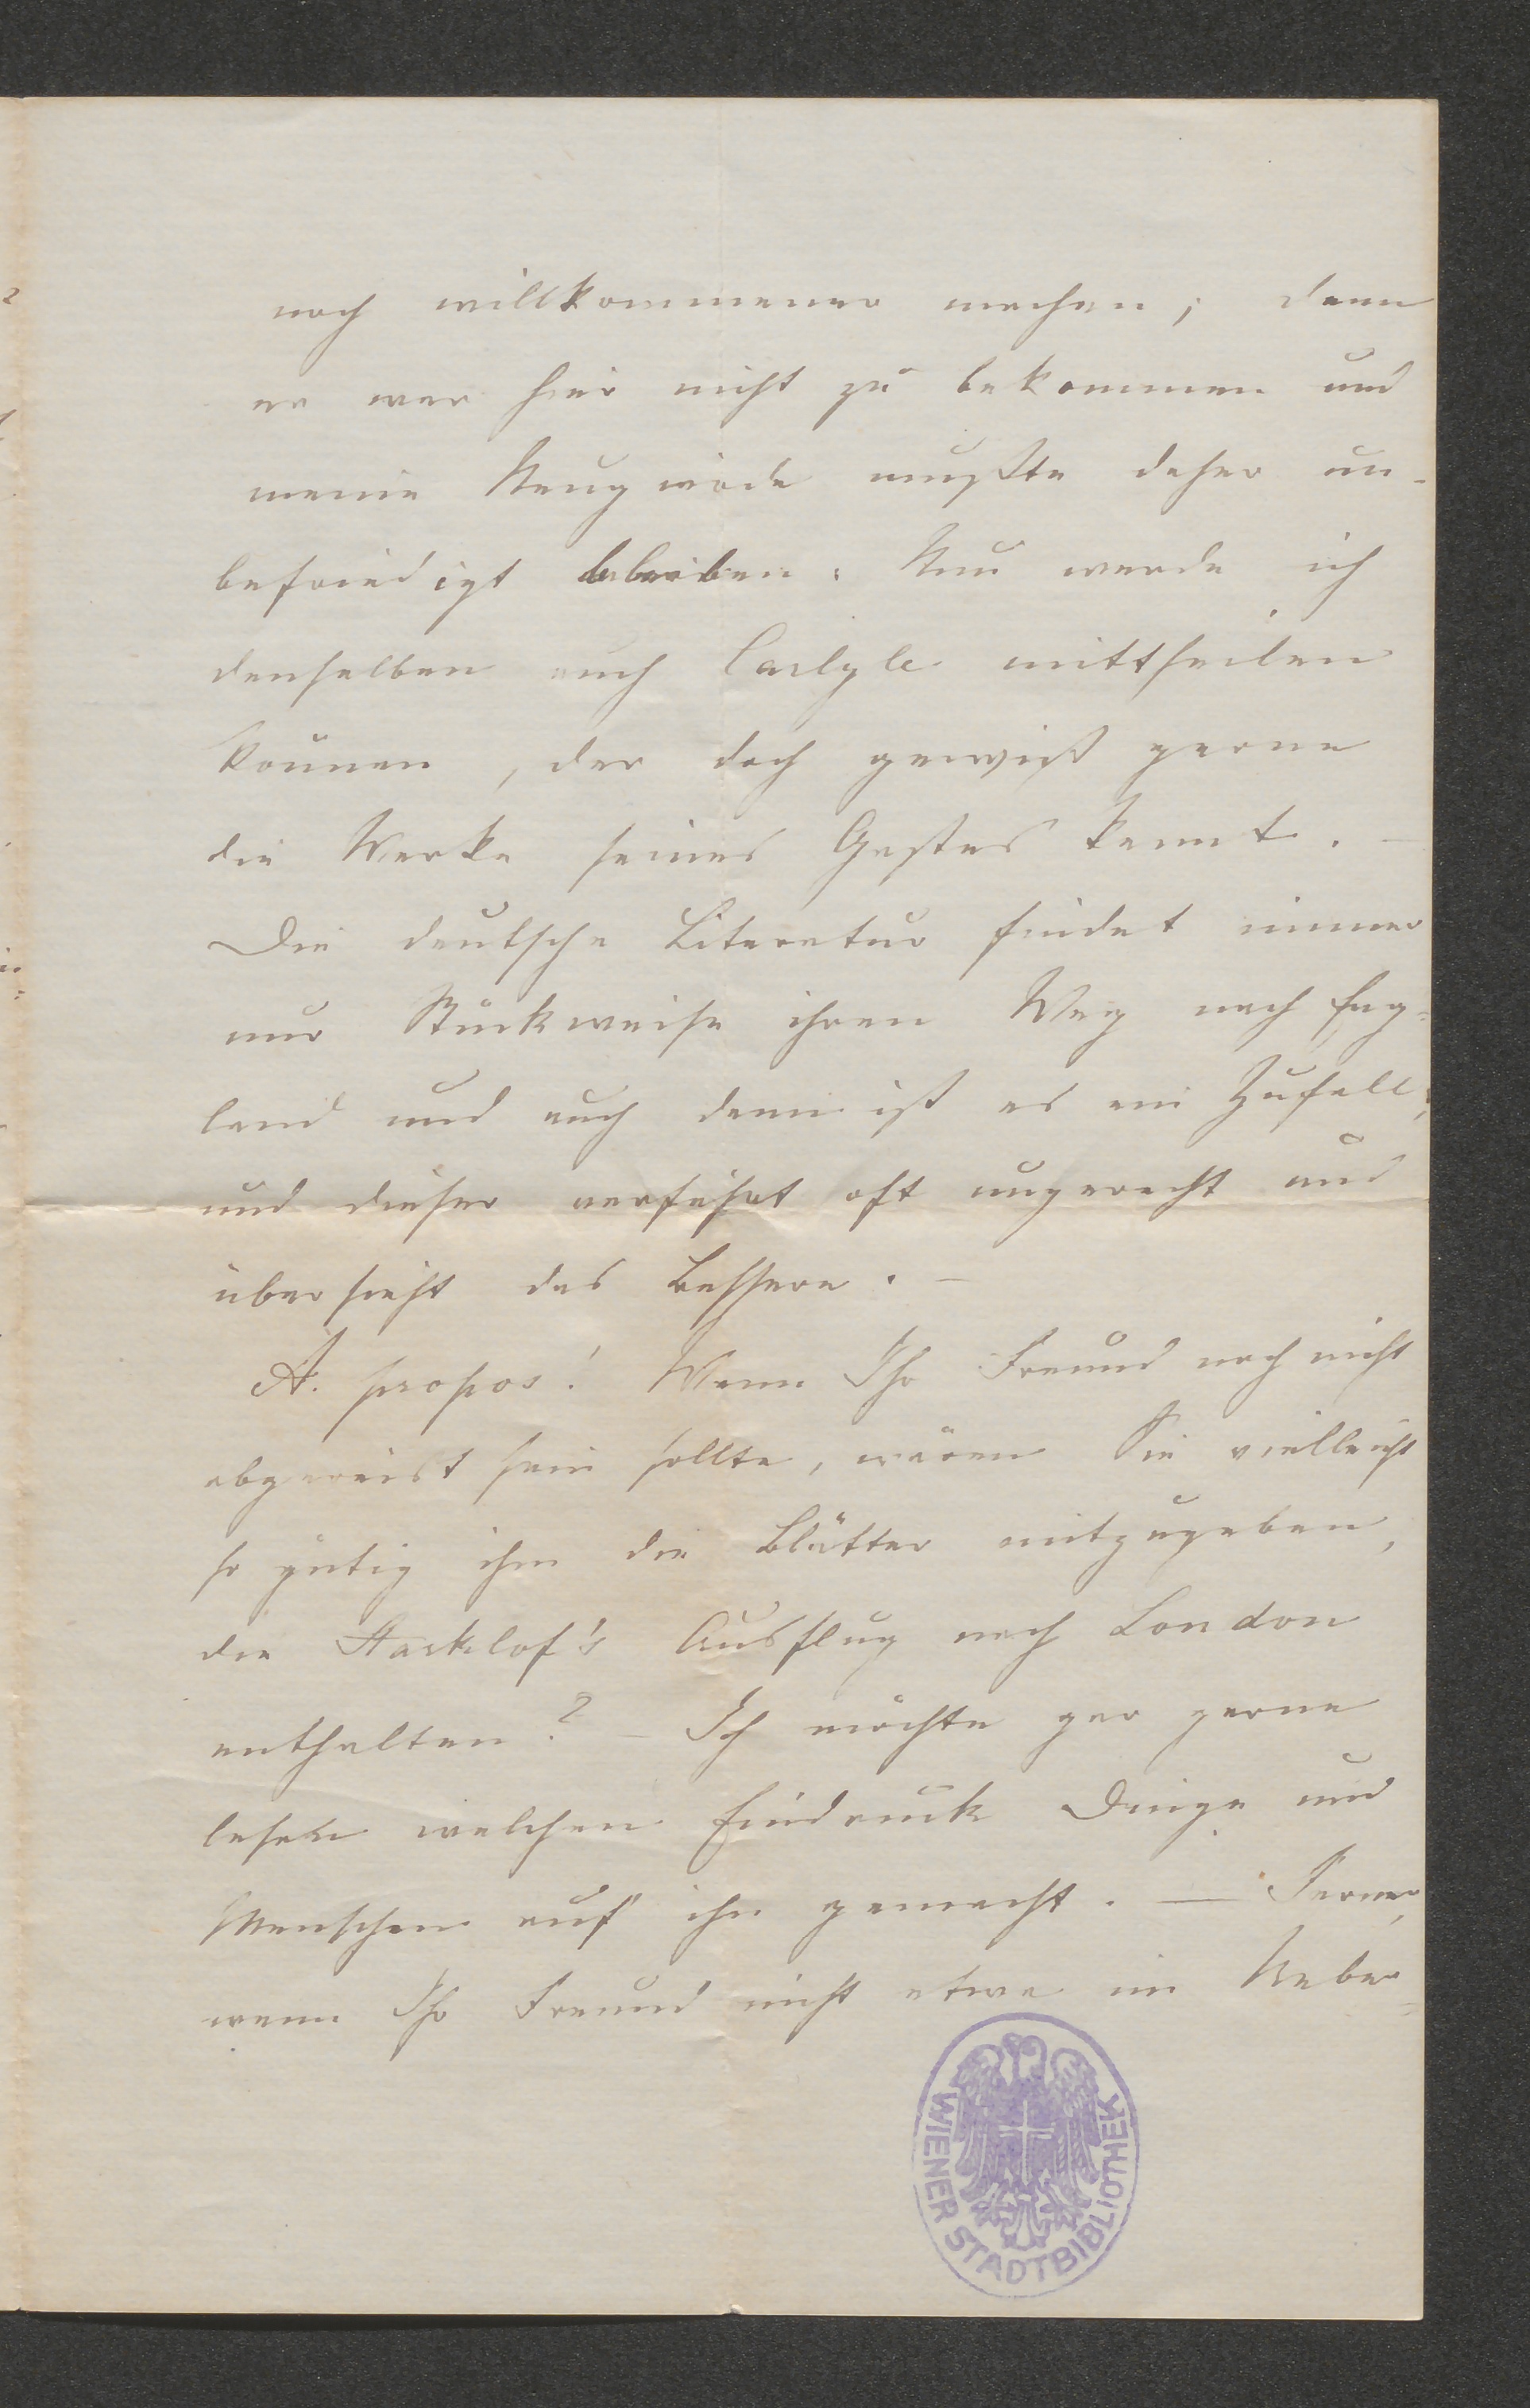 noch willkommener machen; denn
er war hier nicht zu bekommen und
meine Neugierde mußte daher un-
befriedigt bleiben. Nun werde ich
denselben auch Carlyle mittheilen
können, der doch gewiß gerne
die Werke seines Gastes kennt. –
Die deutsche Literatur findet immer
nur Stückweise ihren Weg nach Eng=
land und auch dann ist es ein Zufall,
und dieser verfährt oft ungerecht und
übersieht das Bessere. –
A. propos! Wenn Ihr Freund noch nicht
abgereist sein sollte, wären Sie vielleicht
so gütig ihm die Blätter mitzugeben,
die Starklof's Ausflug nach London
enthalten? – Ich möchte gar gerne
lesen welchen Eindruck Dinge und
Menschen auf ihn gemacht. – Ferner,
wenn Ihr Freund nicht etwa im Ueber=
WIENER STADTBIBLIOTHEK